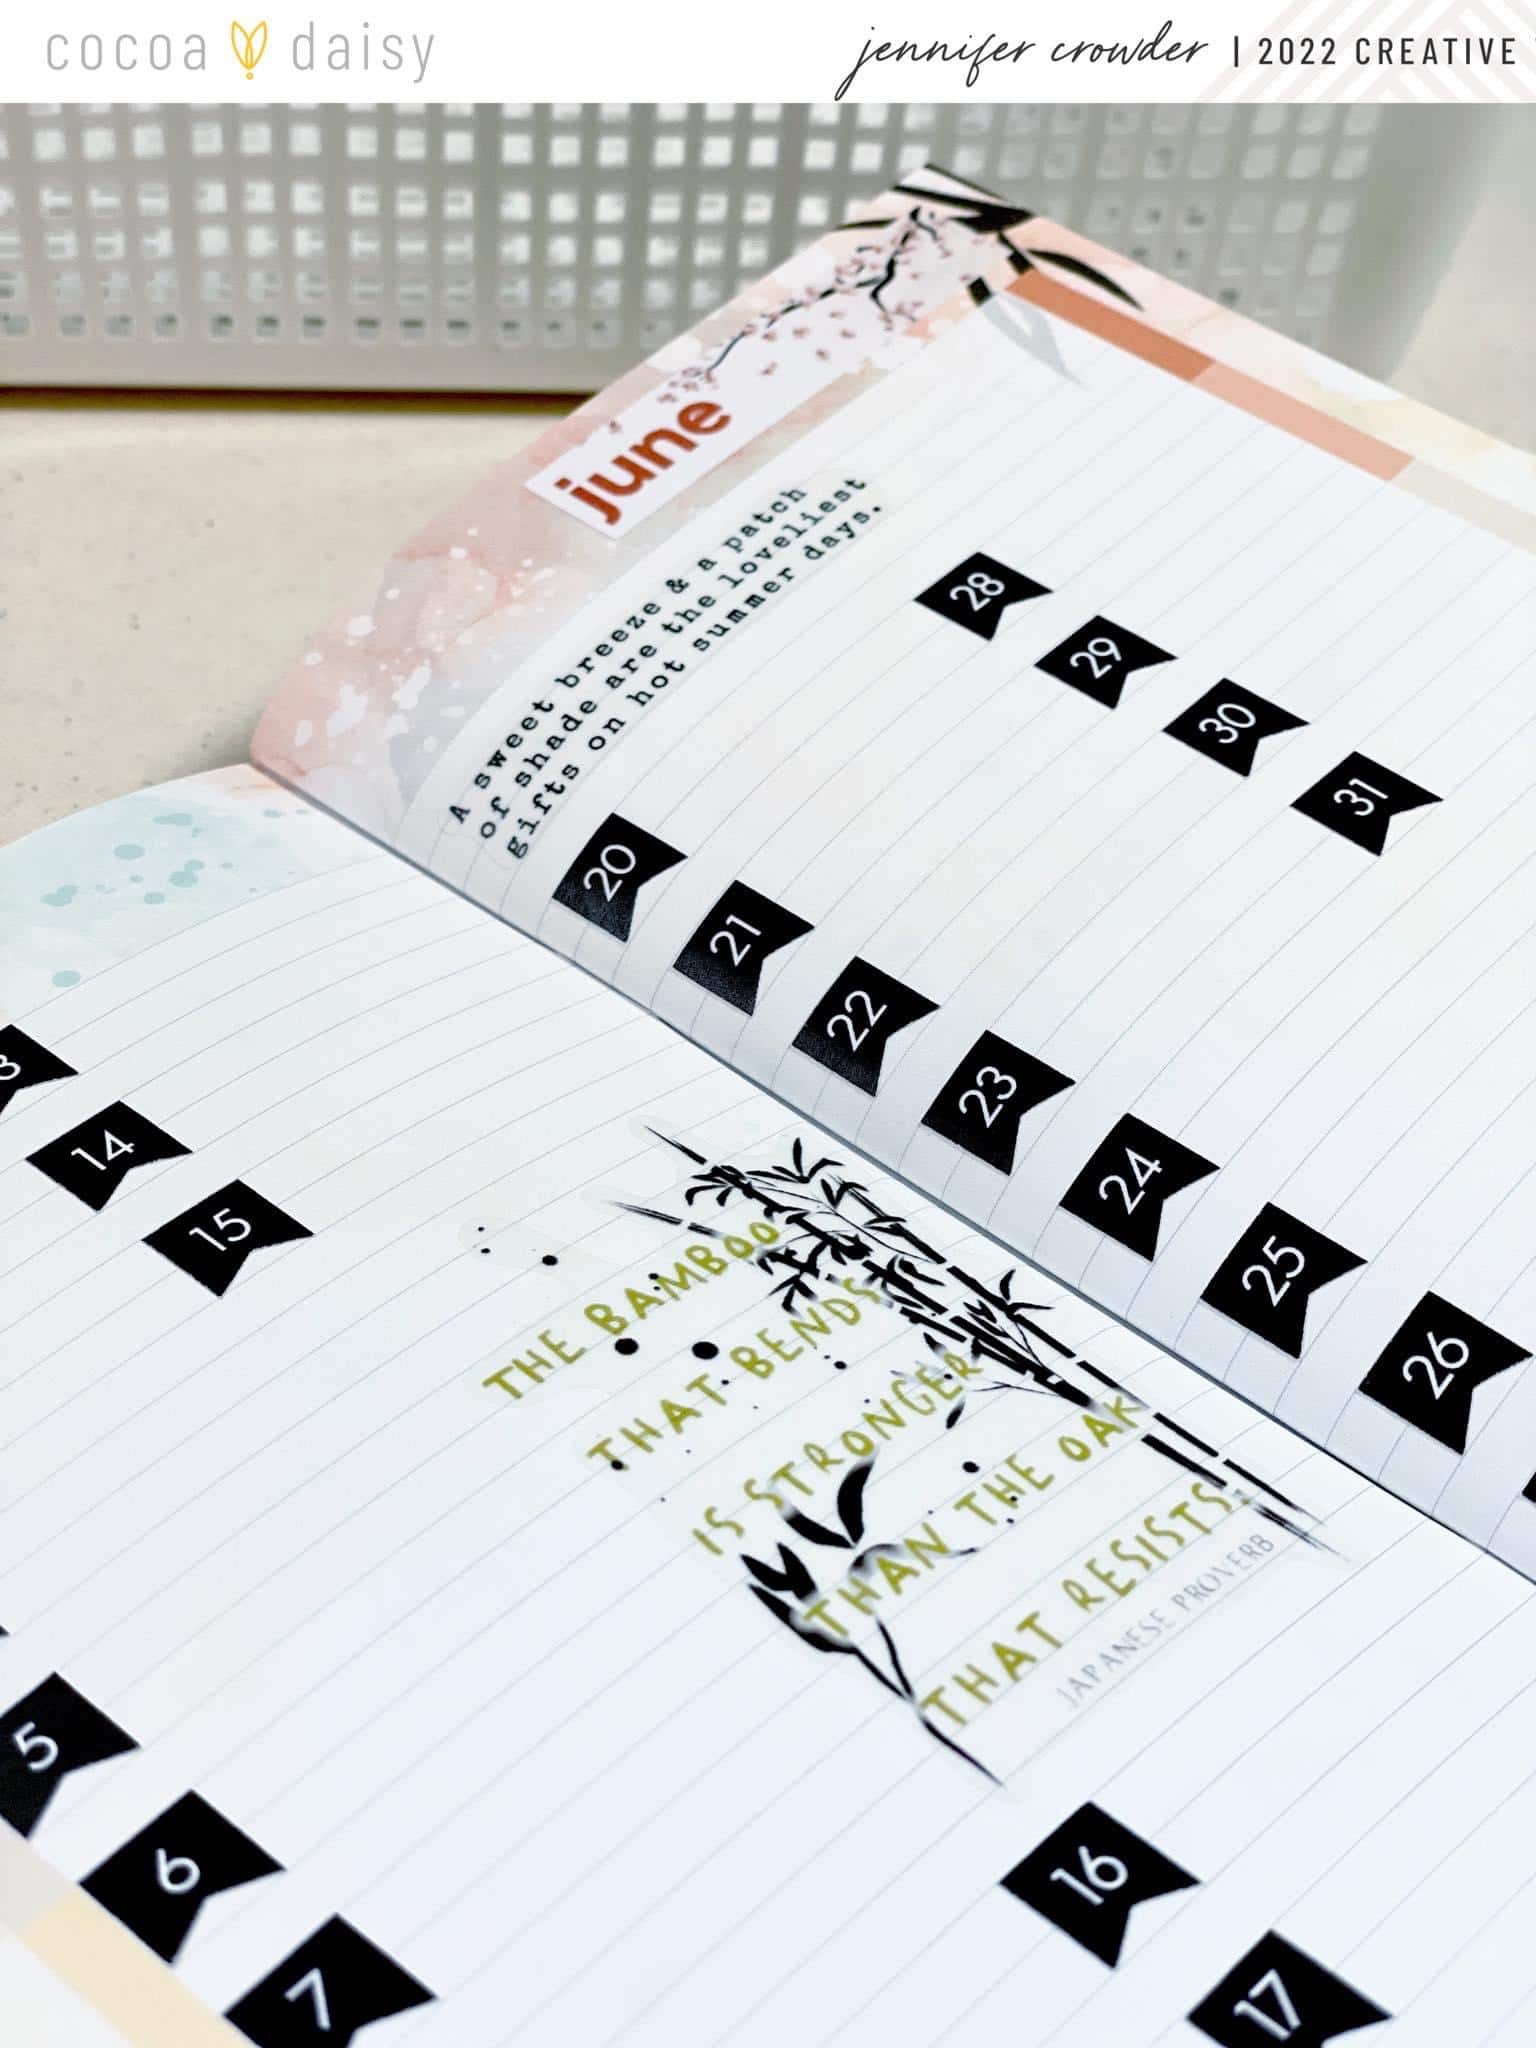 cocoa daisy
jennifer crowder | 2022 CREATIVE
june
A sweet breeze & a patch
of shade are the loveliest
gifts on hot summer days.
28
29
30
31
20
21
22
23
24
25
26
14
15
THE BAMBOO
THAT BENDS
IS STRONGER
THAN THE OAK
THAT RESISTS.
JAPANESE PROVERB
5
6
7
16
17